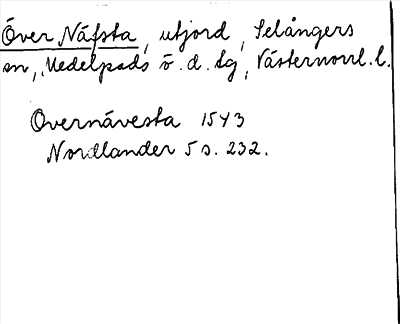 Över Näfsta, utjord, Selångers
sn, Medelpads ö. d. tg, Västernorrl. l.
Overnävesta 1543
Nordlander 5 s. 232.